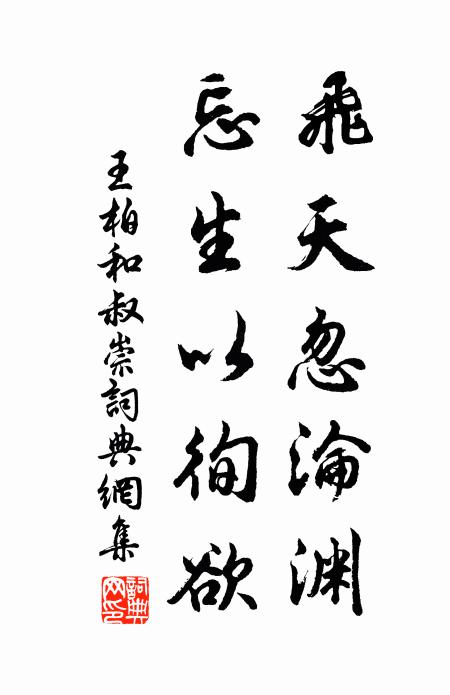 飛天忽淪渊
忘生以徇欲
王柏和叔崇詞典網集
詞典
网印